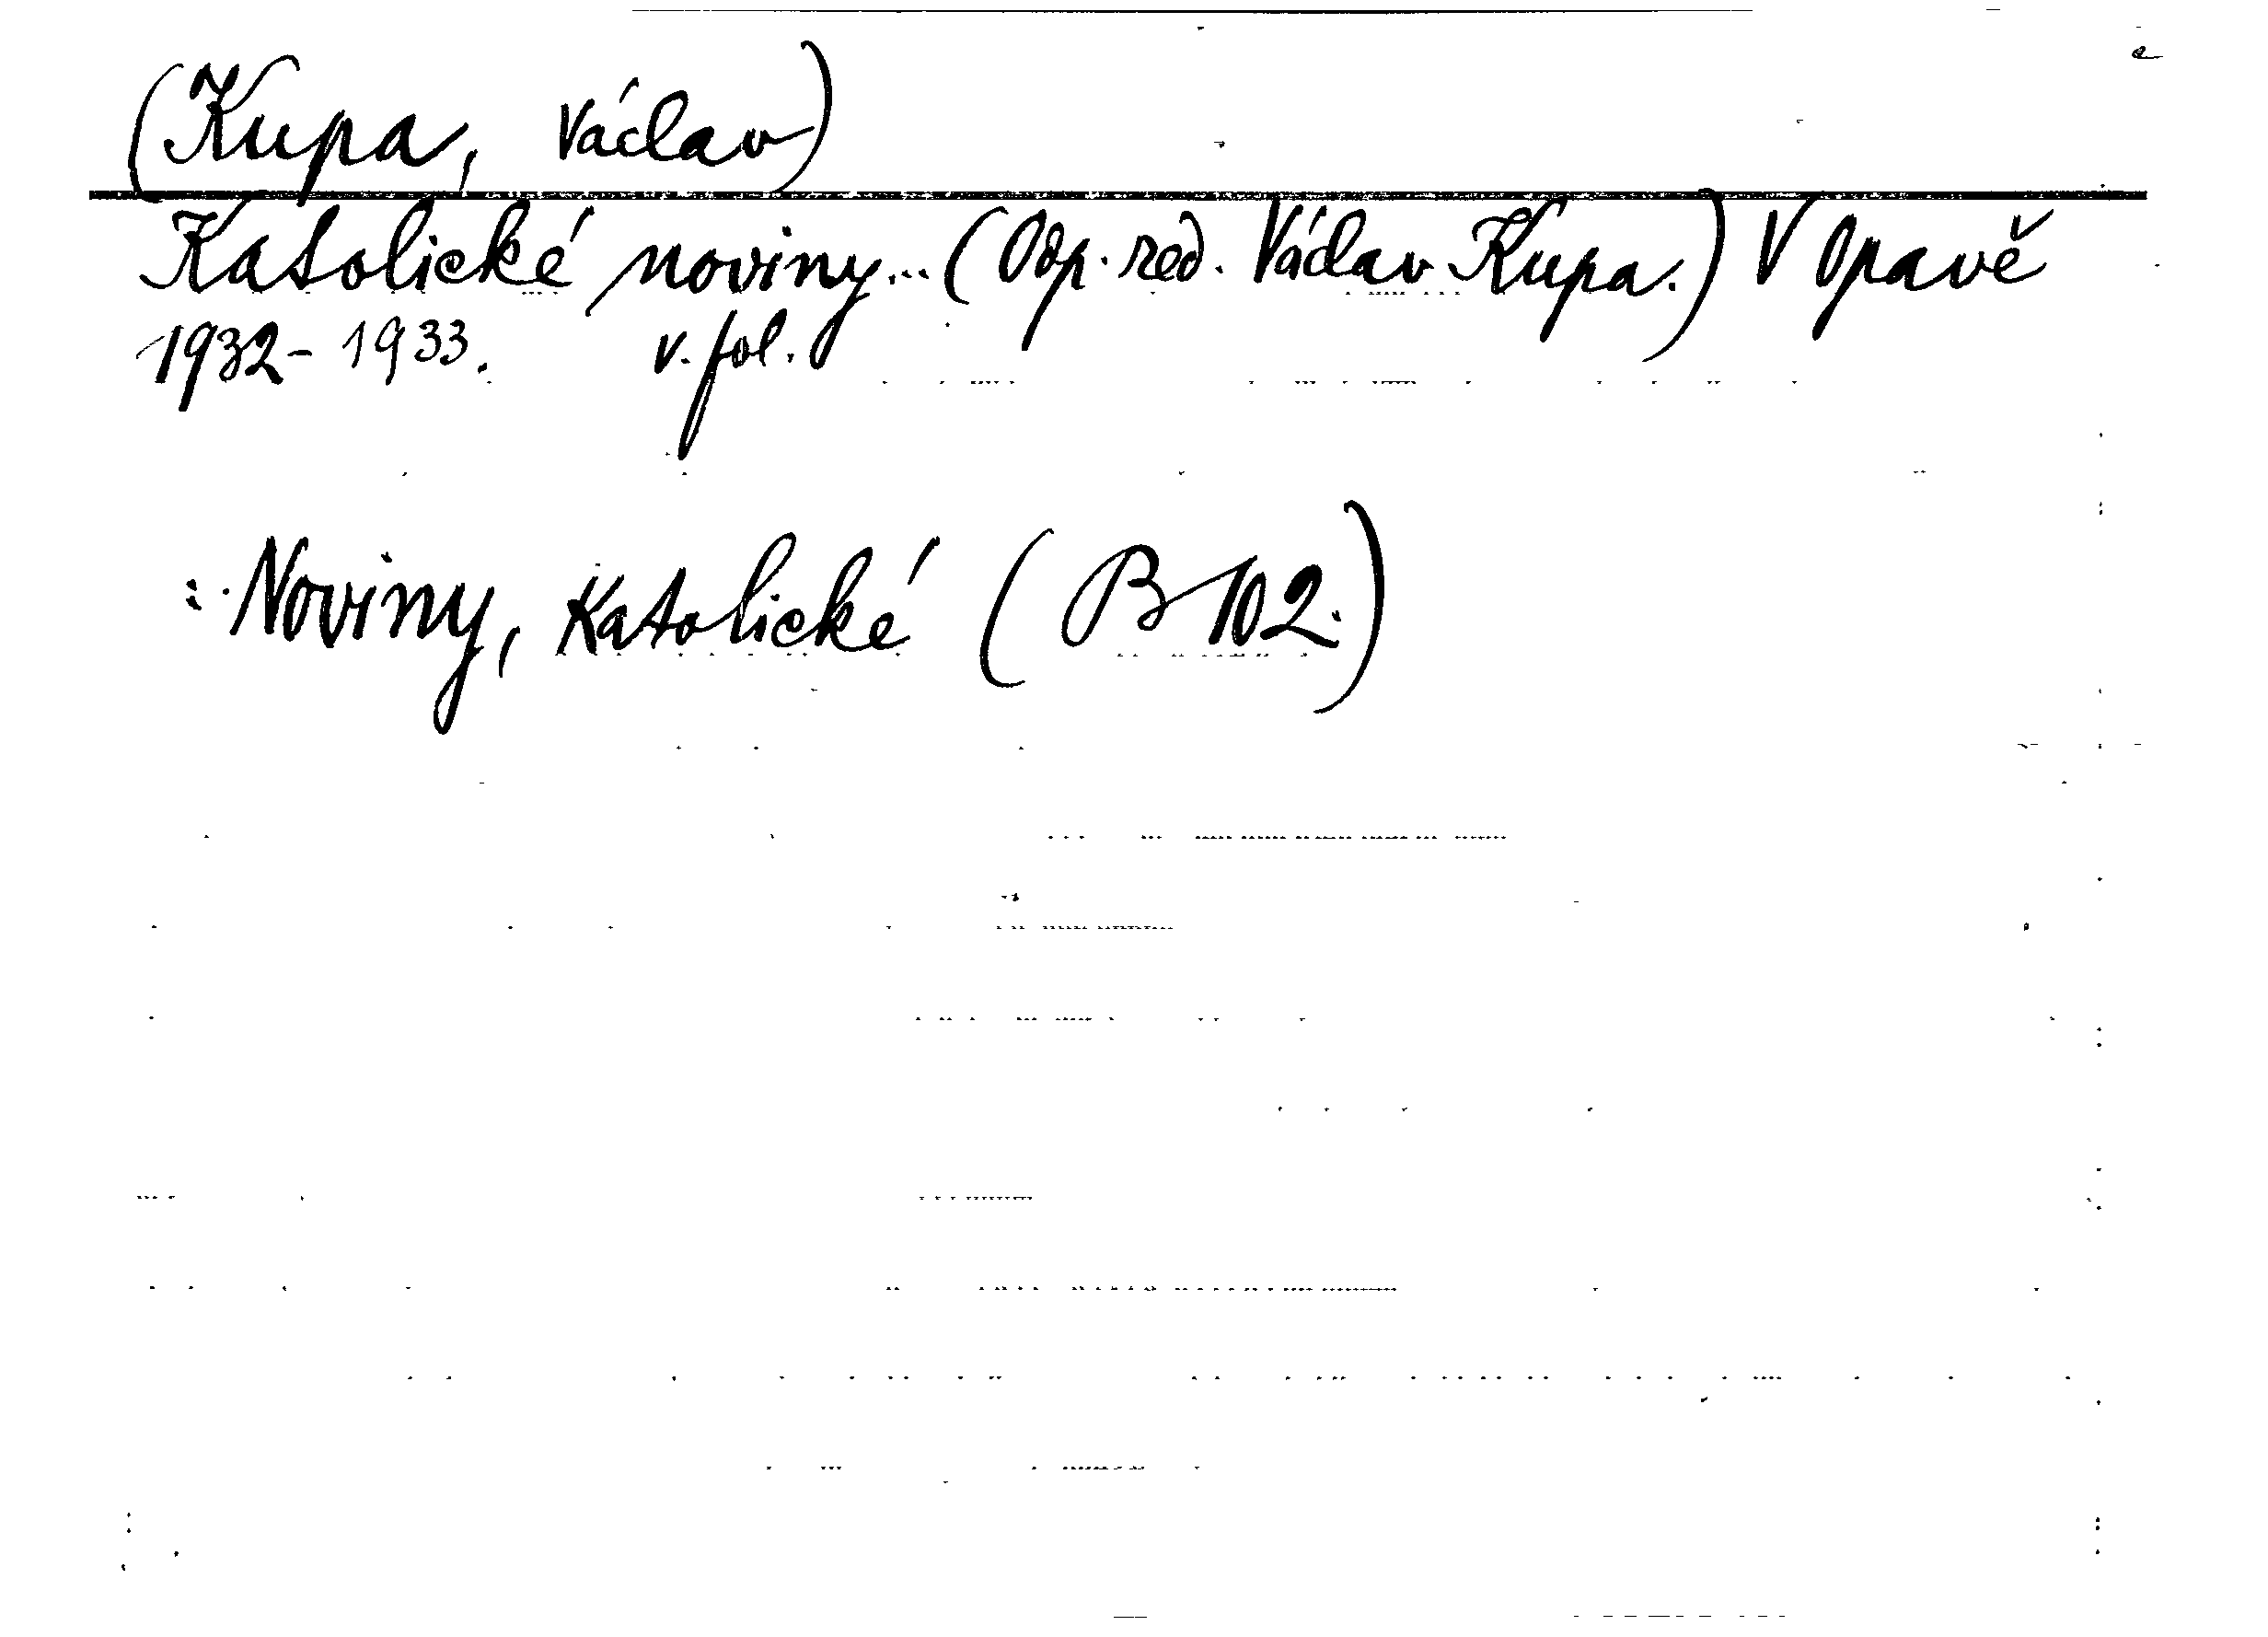 (Kupa, Václav)
Katolické noviny... (Odp. red. Václav Kupa.) V Opavě
1932-1933. v. fol.
: Noviny, Katolické (B 102.)